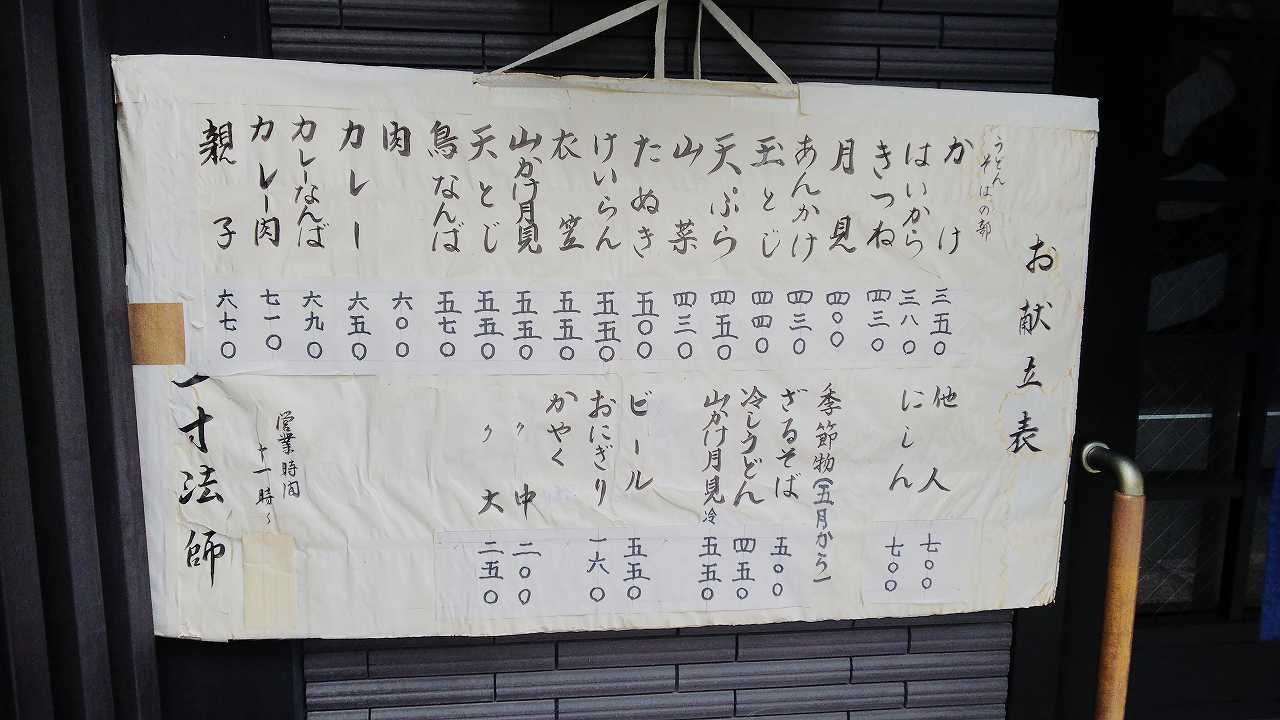 お献立表
うどん
そばの部
かけ 三五〇
はいから 三八〇
きつね 四三〇
月見 四〇〇
あんかけ 四三〇
玉とじ 四四〇
天ぷら 四五〇
山菜 四三〇
たぬき 五〇〇
けいらん 五五〇
衣笠 五五〇
山かけ月見 五五〇
天とじ 五五〇
鳥なんば 五七〇
肉 六〇〇
カレー 六五〇
カレーなんば 六九〇
カレー肉 七一〇
親子 六七〇
他人 七〇〇
にしん 七〇〇
季節物(五月から)
ざるそば 五〇〇
冷しうどん 四五〇
山かけ月見冷 五五〇
ビール 五五〇
おにぎり 一六〇
かやく
〃 中 二〇〇
〃 大 二五〇
営業時間
十一時~
一寸法師